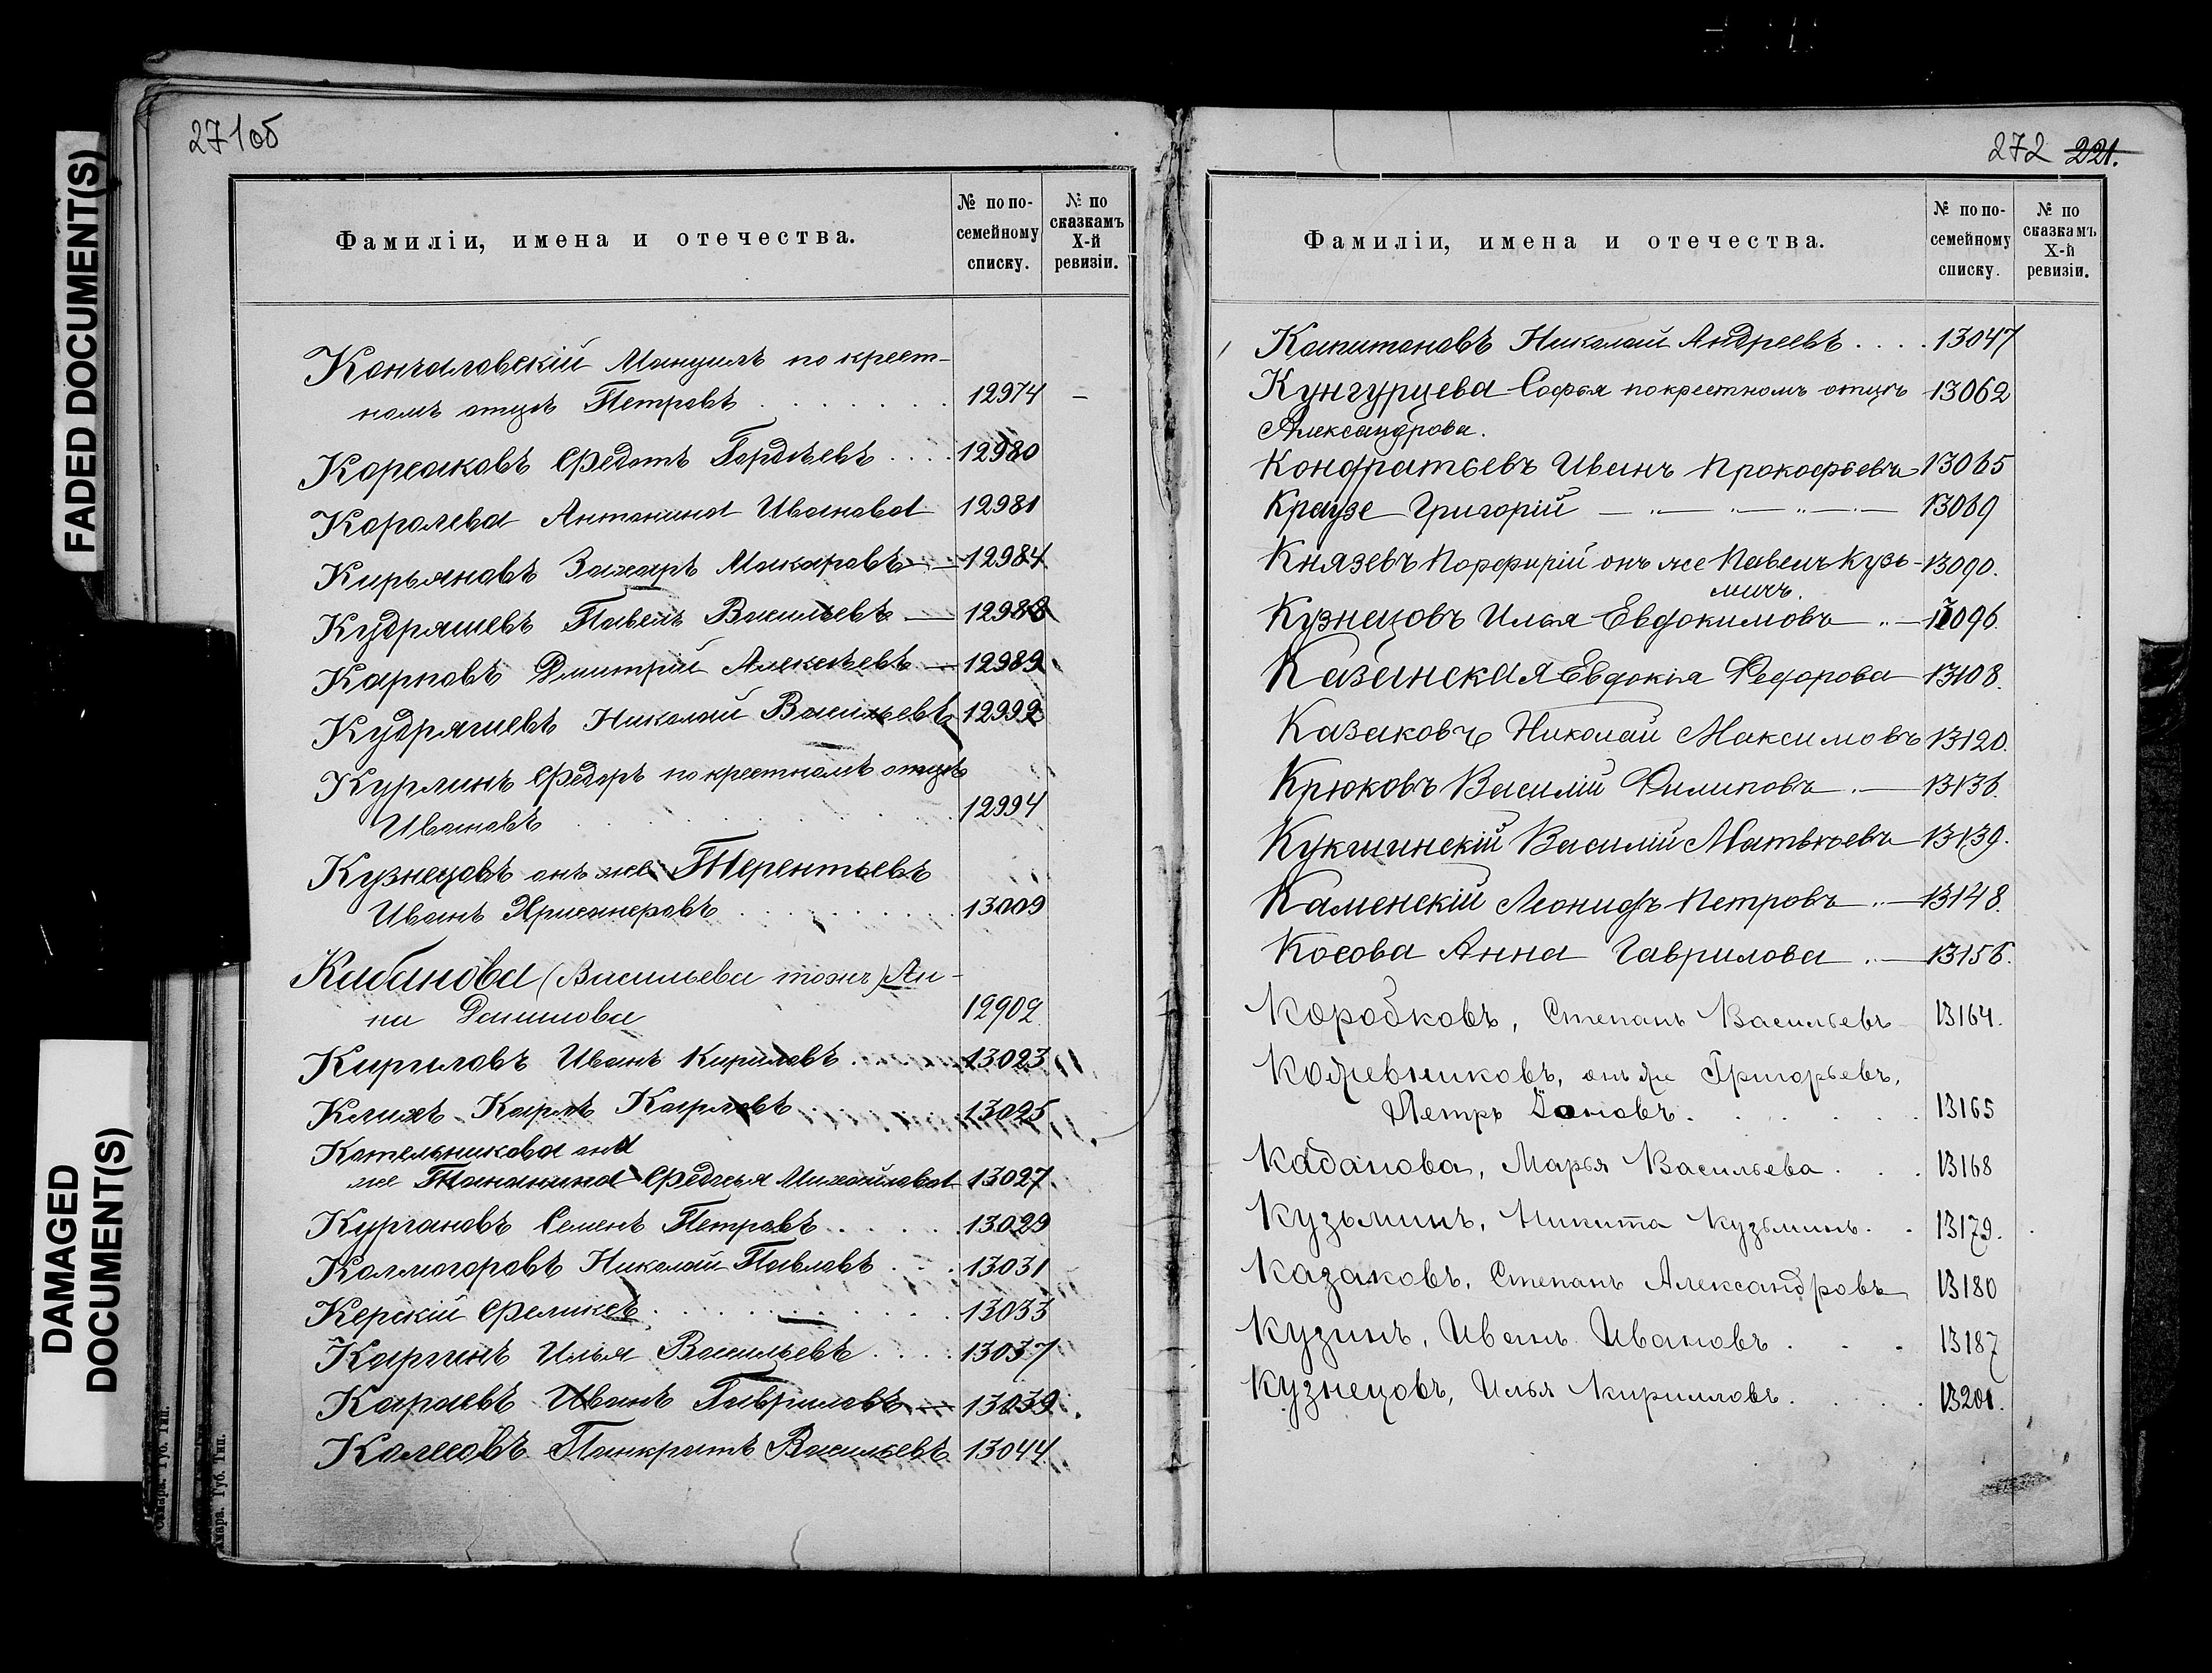 FADED DOCUMENT(S)
DAMAGED
DOCUMENT(S)
271об
Фамиліи, имена и отечества.
№ по по-
семейному
списку.
№ по
сказкамъ
X-й
ревизіи.
Кончаловскій Мануилъ по крест-
номъ отцѣ Петровъ . . . . . . . 12974 -
Корсаковъ Федотъ Гордѣевъ . . . . 12980
Королева Антонина Иванова 12981
Кирьяновъ Захаръ Макаровъ — 12984
Кудряшевъ Павелъ Васильевъ — 12988
Карповъ Дмитрій Алексѣевъ — 12989
Кудряшевъ Николай Васильевъ 12992
Курлинъ Федоръ по крестномъ отцѣ
Ивановъ . . . . . . . . . . 12994
Кузнецовъ онъ же Терентьевъ
Иванъ . . . . . . . 13009
Кабанова (Васильева тожъ) Ан-
на Данилова 12902
Кириловъ Иванъ Кириловъ . . . . 13023
Карлъ Карловъ 13025
Котельникова она
же Федосья Михайлова 13027
Кургановъ Семенъ Петровъ . . . . . 13029
Колмогоровъ Николай Павловъ . . . 13031
Керскій Феликсъ . . . . . . . . 13033
Каргинъ Илья Васильевъ . . . . 13037
Караевъ Иванъ Гавриловъ — 13039
Колесовъ Панкратъ Васильевъ 13044
Губ. Тип.
Губ. Тип.
272 221.
Фамиліи, имена и отечества.
№ по по-
семейному
списку.
№ по
сказкамъ
X-й
ревизіи.
Капитоновъ Николай Андреевъ . . . . 13047
Кунгурцева Софья по крестномъ отцѣ 13062
Александрова.
Кондратьевъ Иванъ Прокофьевъ 13065
Краузе Григорій — „ — „ — „ — 13069
Князевъ Порфирій онъ же Павелъ Кузь- 13090.
мичъ.
Кузнецовъ Илья Евдокимовъ „ — 13096.
Казанская Евдокія Федорова — 13108.
Казаковъ Николай Максимовъ 13120.
Крюковъ Василій Филиповъ . — 13136.
Кукшинскій Василій Матвѣевъ — 13139.
Каменскій Леонидъ Петровъ „ — 13148.
Косова Анна Гаврилова „ — 13156.
Коробковъ, Степанъ Васильевъ 13164.
Кожевниковъ, онъ же Григорьевъ,
Петръ . . . . . . 13165
Кабанова, Марья Васильева . . . 13168
Кузьминъ, Никита Кузьминъ. . 13179.
Казаковъ, Степанъ Александровъ 13180
Кузинъ, Иванъ Ивановъ . . . 13187
Кузнецовъ, Илья Кирилловъ . . . . . 13201.